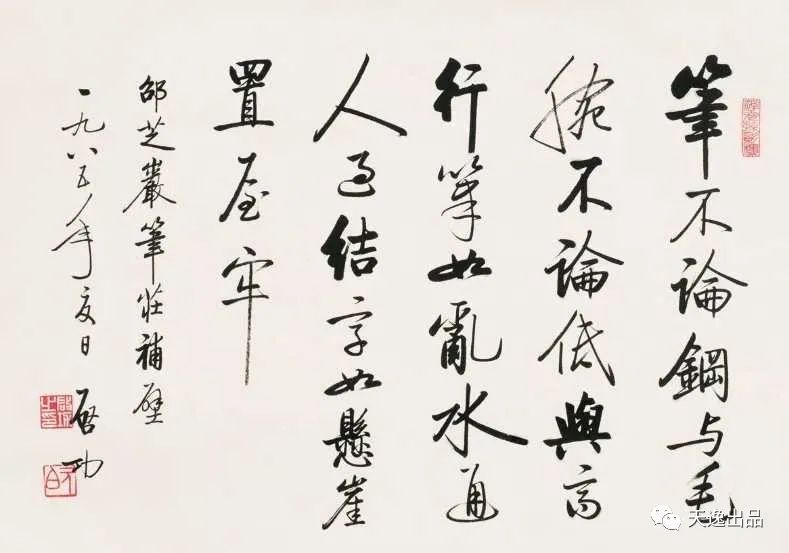 筆不論鋼与毛
腕不論低與高
行筆如亂水通
人過結字如懸崖
置屋牢
邵芝巖筆莊補壁
一九八五年夏日 启功
天逸出品